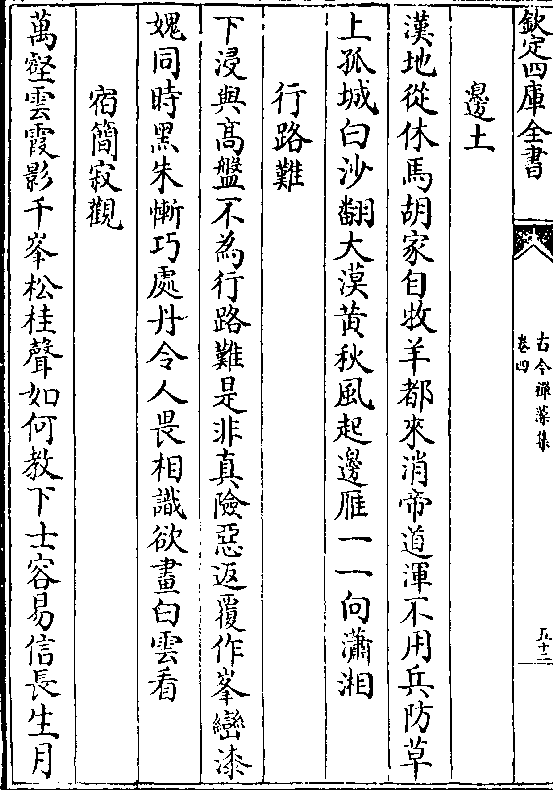 欽定四庫全書
古今禪藻集
卷四
五十二
邊土
漢地從休馬胡家自牧羊都來消帝道渾不用兵防草
上孤城白沙翻大漠黄秋風起邊雁一一向瀟湘
行路難
下浸與髙盤不為行路難是非真險惡返覆作峯巒漆
媿同時黑朱慚巧處丹令人畏相識欲畫白雲看
宿簡寂觀
萬壑雲霞影千峯松桂聲如何教下士容易信長生月